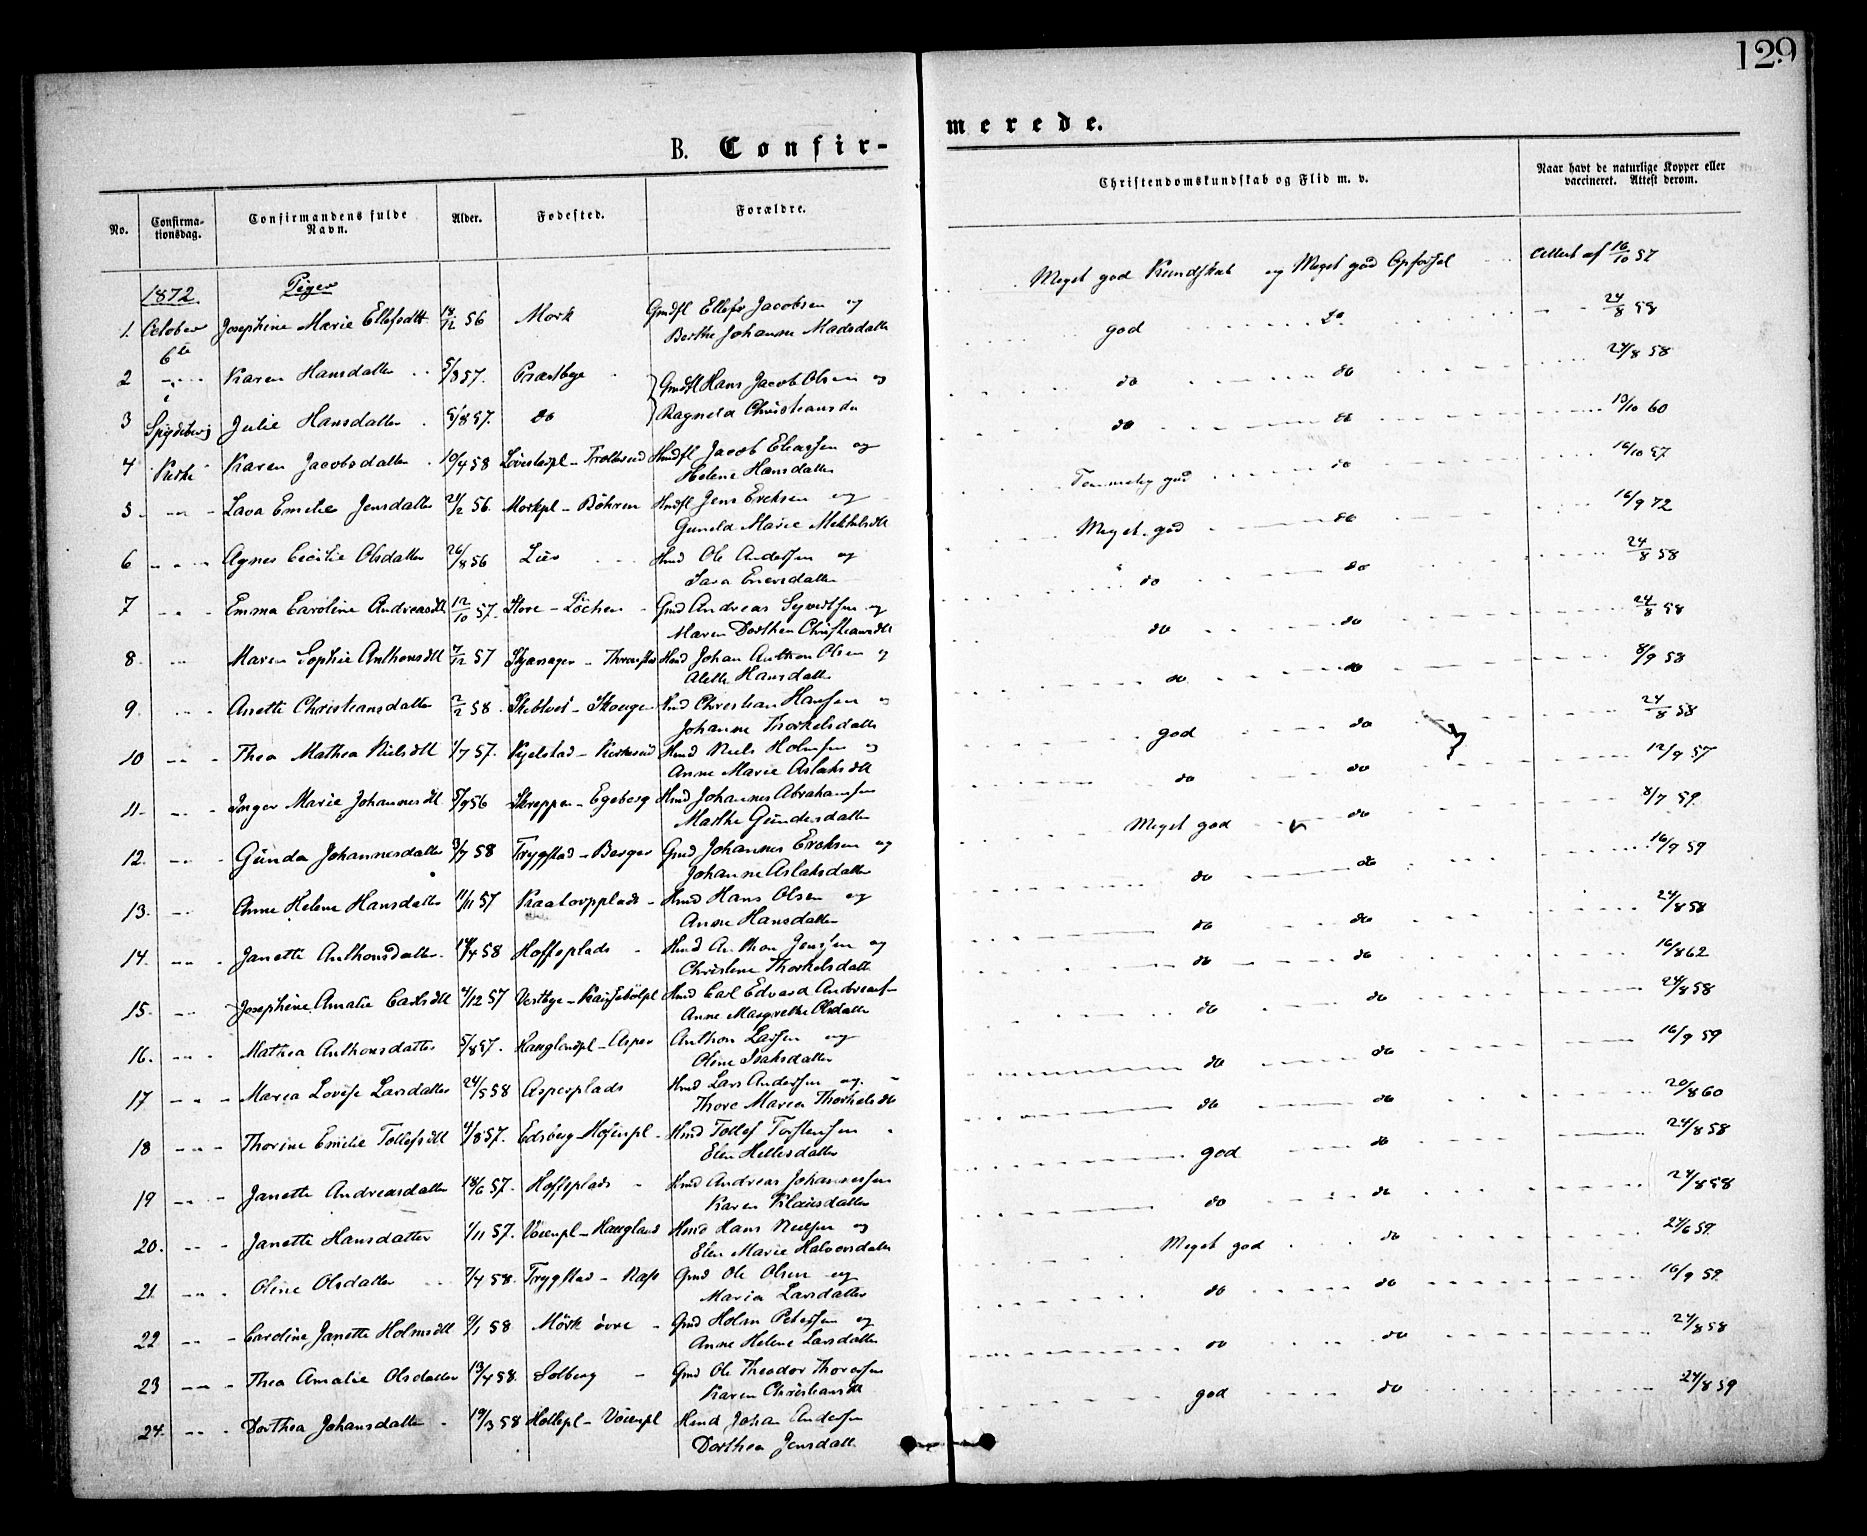 129
B. Confir-
merede.
No. Confirma-tionsdag. Confirmandens fulde Navn. Alder. Fødested. Forældre. Christendomskundskab og Flid m. v. Naar havt de naturlige Kopper eller vaccineret. Attest derom.
1872. Piger
1. October Josephine Marie Ellefsdtt 18/12 56 Mork Gmdfl Ellef Jacobsen og Meget god Kundskab og Meget god Opførsel Attest af 16/10 57
6te Berthe Johanne Madsdatter
2 Karen Hansdatter 5/8 57. Præstbye Gmdfl Hans Jacob Olsen og god do 24/8 58
3 i Spydeberg Julie Hansdatter 5/8 57. do Ragnild Christiansda do do 24/8 58
4 Kirke Karen Jacobsdatter 10/4 58 Hmdfl Jacob Eliassen og do do 13/10 60
Helene Hansdatter
5 Lava Emilie Jensdatter 21/2 56. Morkpl - Böhren Hmdfl Jens Ericksen og Temmelig god do 16/10 57
Gunild Marie
6 Agnes Cecilie Olsdatter 26/8 56 Lier Hmd Ole Andersen og Meget god do 16/9 72
Sara Eversdatter
7 Emma Caroline Andreasdtt 12/10 57. Store - Löchen Gmd Andreas Syvertsen og do do 24/8 58
Maren Dorthea Christiansdtt
8. Maren Sophie Anthonsdtt 7/12 57 Hmd Johan Anthon Olsen og do do 24/8 58
Alette Hansdatter
9. Anette Christiansdatter 2/2 58. Hmd Christian Hansen og do do 8/9 58
Johanne Thorkelsdatter
10 Thea Mathea Nielsdtt 1/7 57. Kjelstad - Hmd Niels Holmsen og god do 24/8 58
Anne Marie Aslaksdtt
11. Inger Marie Johannesdtt 5/9 56 Skreppen - Egeberg Hmd Johannes Abrahamsen do do 12/9 57
Marthe Gundersdatter
12. Gunda Johannesdatter 3/7 58 Trygstad - Berger Gmd Johannes Ericksen og Meget god do 8/7 59.
Johanne Aslaksdatter
13. Anne Helene Hansdatter 11/11 57 Hmd Hans Olsen og do do 16/9 59
Anne Hansdatter
14. Janette Anthonsdatter 14/4 58 Hoffsplads Hmd Anthon Jenssen og do do 24/8 58
Christine Thorkelsdatt
15. Josephine Amalie Carlsdtt 4/12 57 Vestbye - Hmd Carl Edvard Andreasen do do 16/8 62
Anne Margrethe Olsdatter
16. Mathea Anthonsdatter 5/8 57. Hauglandpl - Asper Anthon Larsen og do do 24/8 58
Oline Isaksdatter
17 Maria Lovise Larsdatter 24/5 58 Asperplads Hmd Lars Andersen og do do 16/9 59
Thore Maria Thorkelsdtt
18 Thorine Emilie Tollefsdtt 4/8 57. Edsberg - Hmd Tollef Torstensen do do 20/8 60
Elen Hellesdatter
19 Janette Andreasdatter 18/6 57. Hoffsplads Hmd Andreas Johannessen god do 24/8 58
Karen Klausdatter
20. Janette Hansdatter 1/11 57. Vöienpl - Haugland Hmd Hans Nielsen og do do 24/8 58
Elen Marie Halvorsdatter
21 Oline Olsdatter 7/4 58. Trygstad - Næss Gmd Ole Olsen og Meget god do 24/6 59.
Maria Larsdatter
22 Caroline Janette Holmsdtt 9/1 58 Mörk övre Gmd Holm Petersen og do do 16/9 59.
Anne Helene Larsdatter
23 Thea Amalie Olsdatter 13/4 58. Solberg Gmd Ole Theodor Thoresen do do 24/8 58
Karen Christiansdtt
24. Dorthea Johansdatter 19/3 58 Hollepl - Vöienpl Hmd Johan Andersen god do 24/8 59
Dorthea Jensdatt